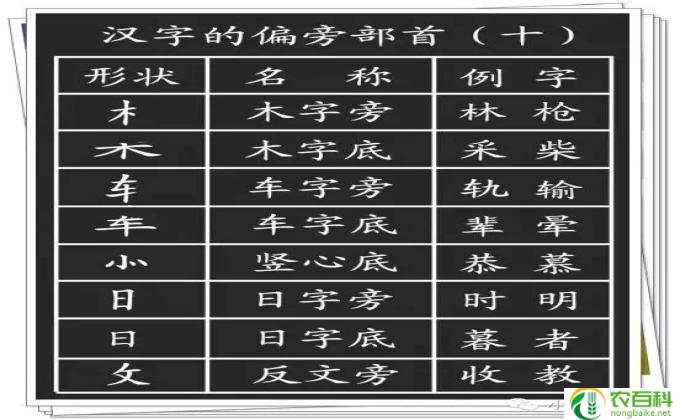 汉字的偏旁部首（十）
形状 名称 例字
木 木字旁 林 枪
木 木字底 采 柴
车 车字旁 轨 输
车 车字底 辈 晕
⺗ 竖心底 恭 慕
日 日字旁 时 明
日 日字底 暮 者
攵 反文旁 收 教
农百科
nongbaike.net